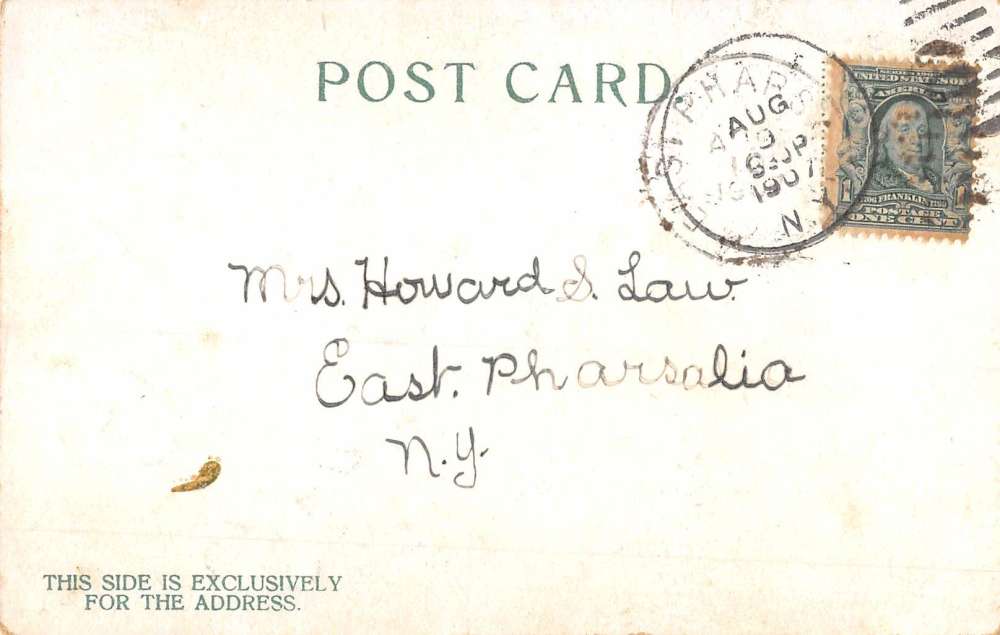 POST CARD
AUG
1907
N.Y.
SERIES 1902
UNITED STATES OF
AMERICA
1 1
FRANKLIN
POSTAGE
ONE CENT
Mrs. Howard S. Law.
East. Pharsalia
N.Y.
THIS SIDE IS EXCLUSIVELY
FOR THE ADDRESS.